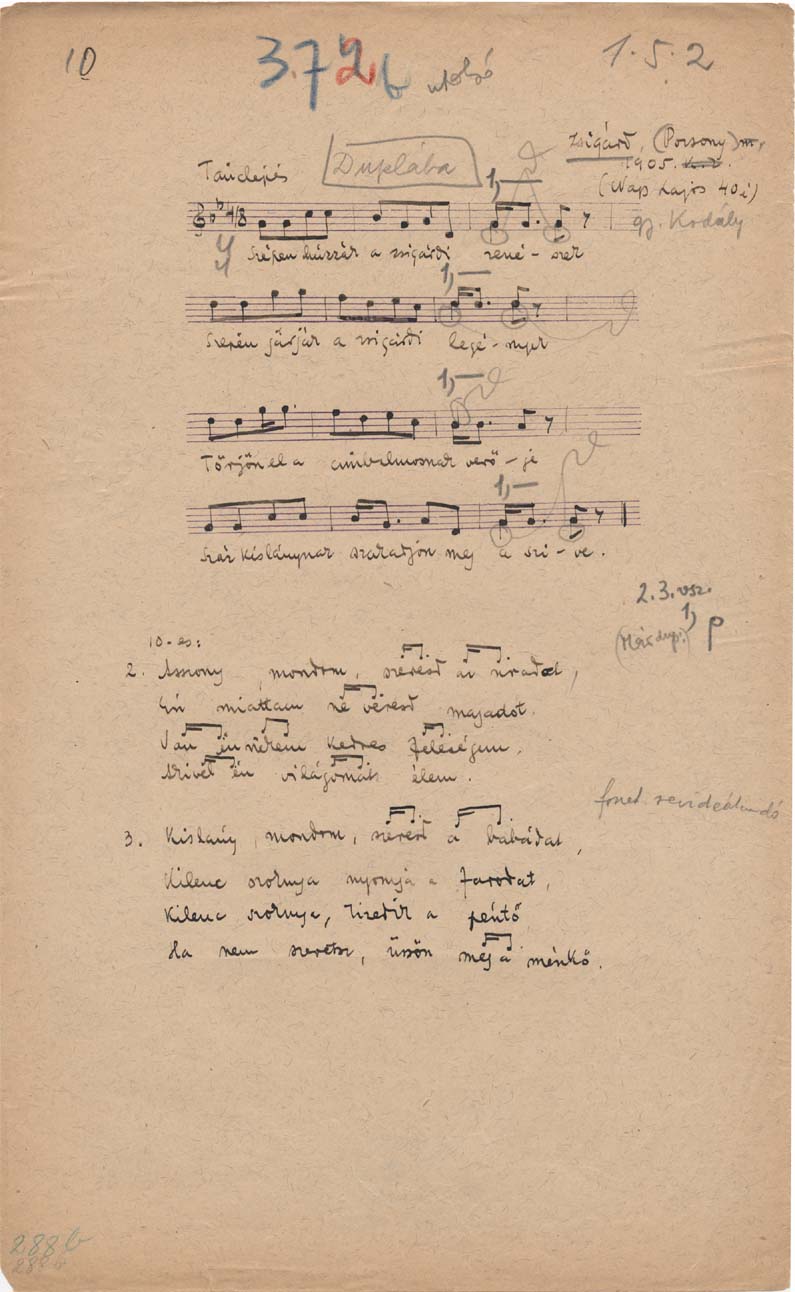 10
3.7 2 b utolsó
1.5.2
Zsigárd, (Pozsony) m.
1905.
(Nap Lajos 40 é)
gy. Kodály
Tánclépés
Duplába
4/8
4
4
1,—
Szépen húzzák a zsigárdi zené - szek
1,—
Szepën járják a zsigárdi legé - nyek
1,—
Törjön el a cimbalmosnak verő - je
1,—
Csak kislánynak szakadjon meg a szi - ve.
2. 3. vsz.
1, p
10-es:
2. Asszony, mondom, szeresd az uradat,
Én miattam ne veresd magadot.
Van én nekem kedves feleségem,
Akivel én világomat élem.
fonet. revideálandó
3. Kislány, mondom, szeresd a babádat,
Kilenc szoknya nyomja a farodat,
Kilenc szoknya, tizedik a péntő
Ha nem szeretsz, üssön meg a ménkő.
288 b
288 b